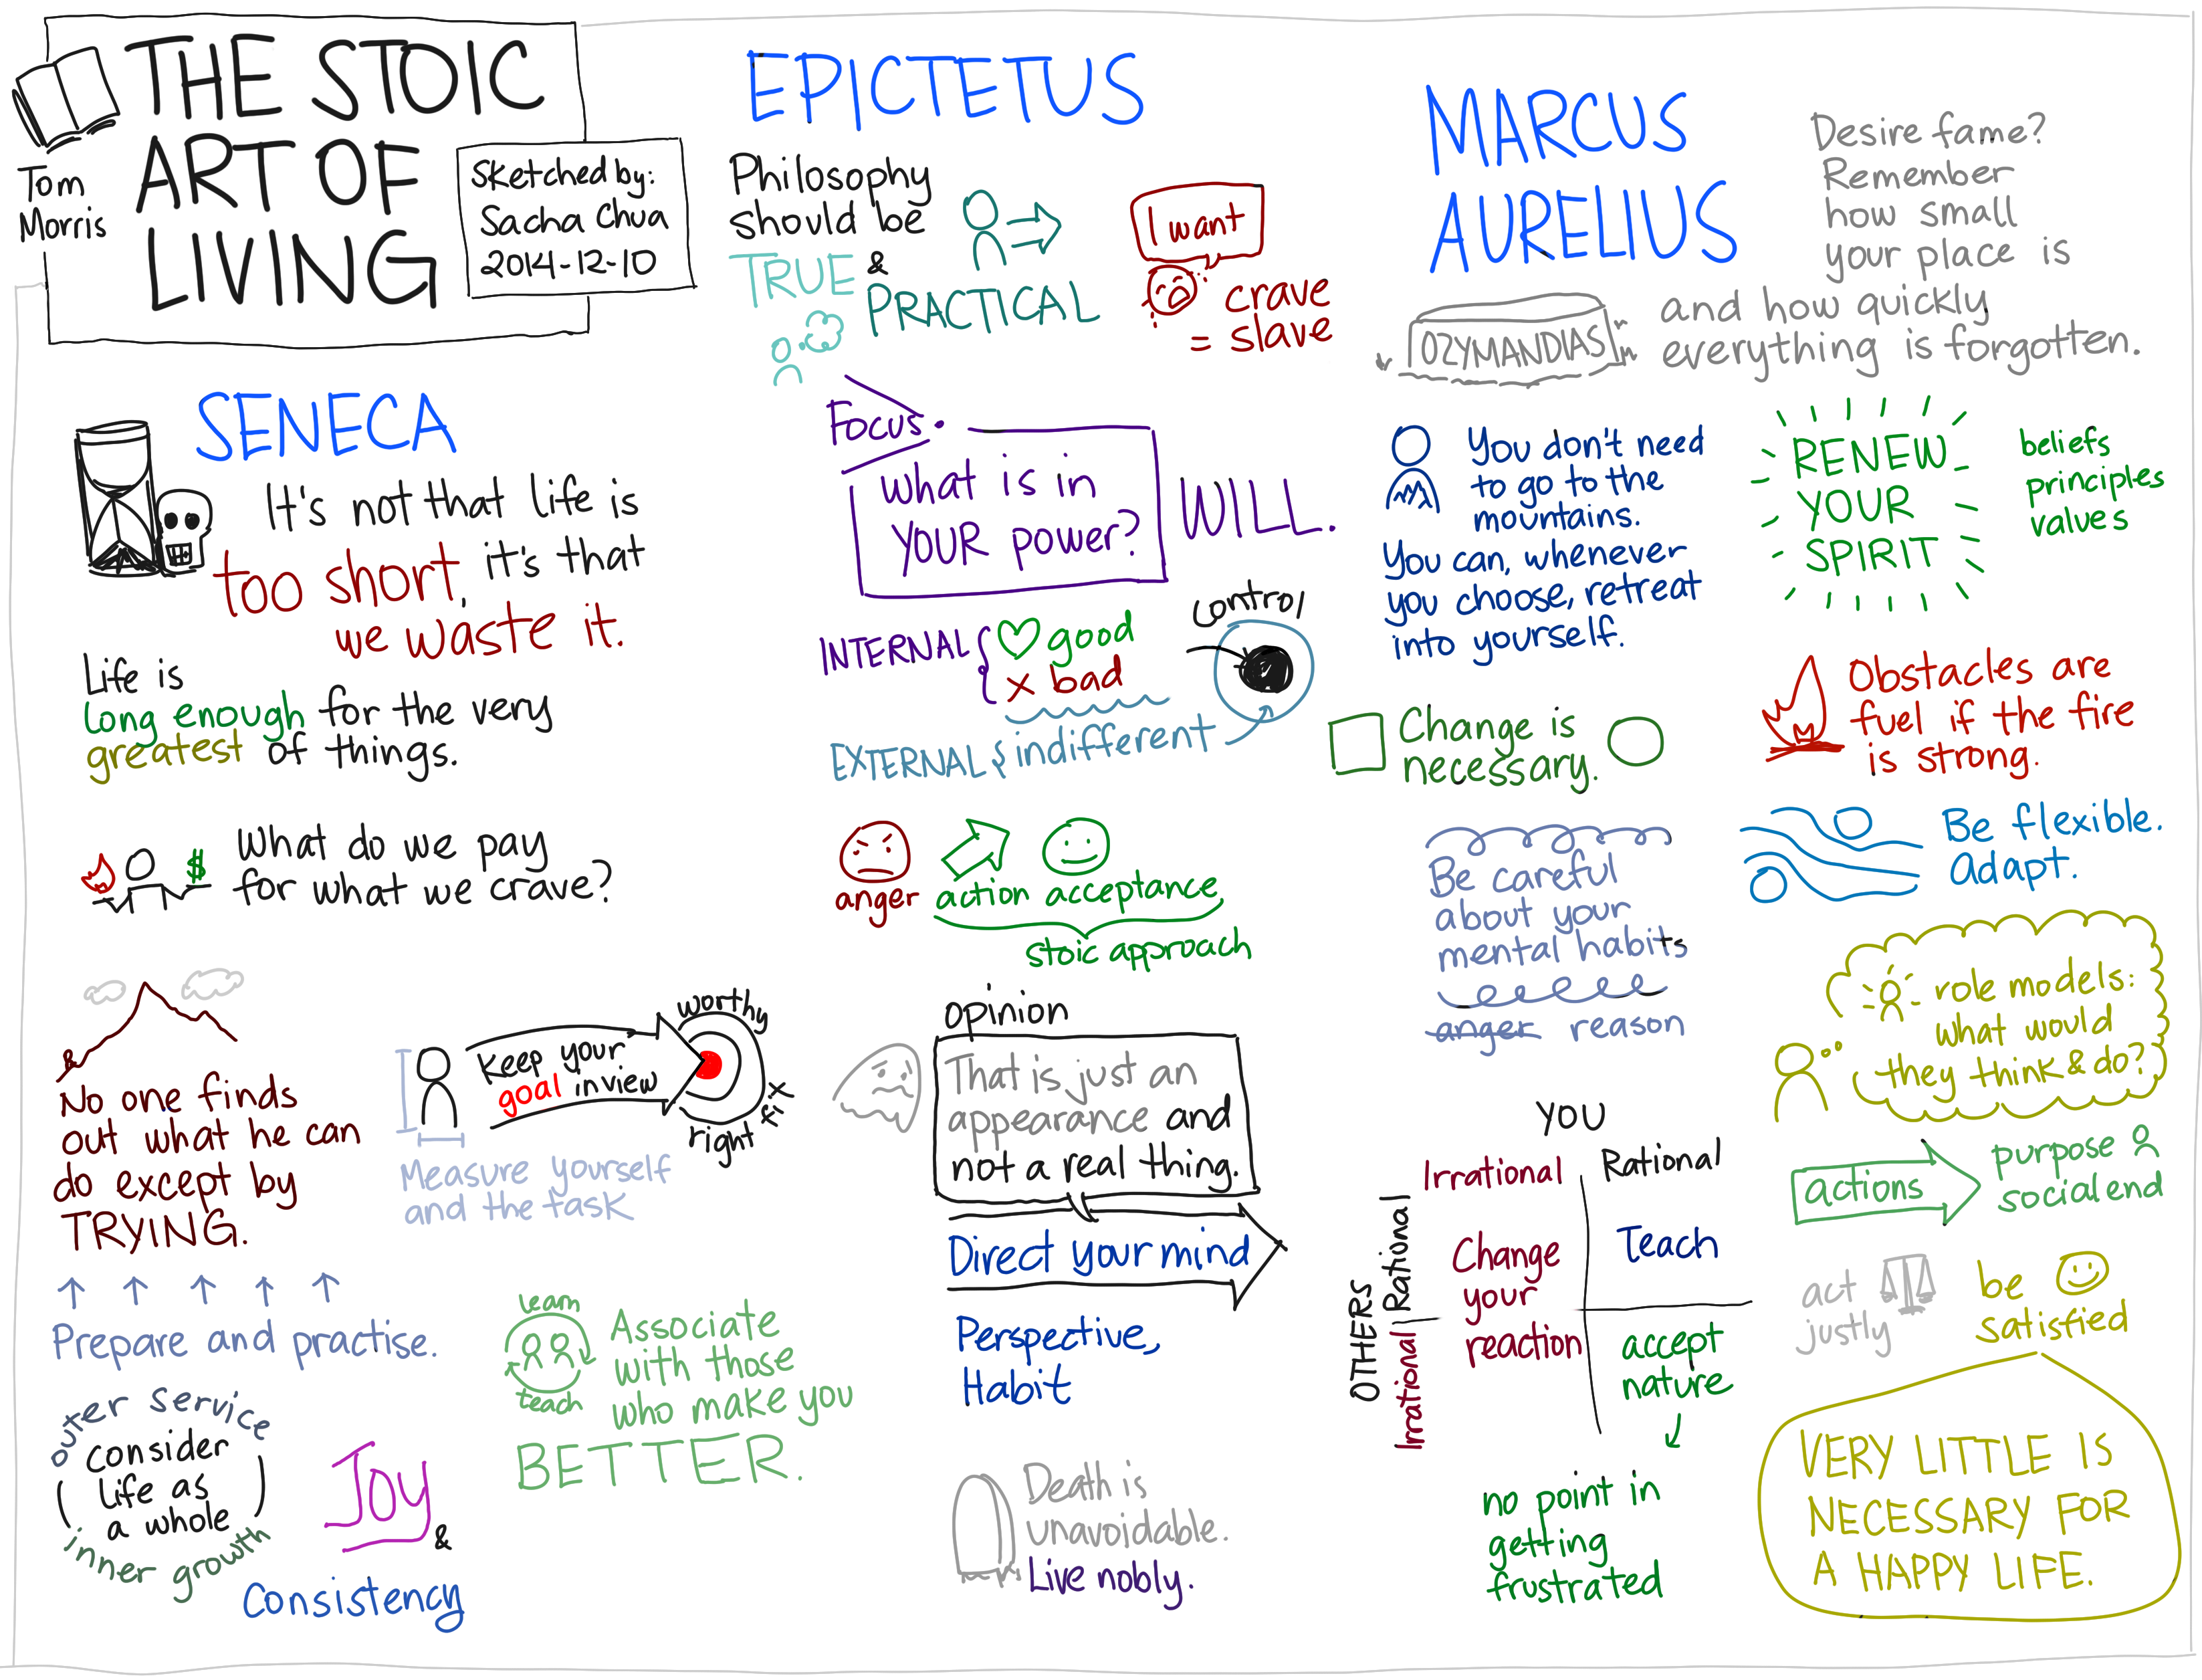 THE STOIC
ART OF
LIVING
Tom
Morris
Sketched by:
Sacha Chua
2014-12-10
SENECA
It's not that life is
too short, it's that
we waste it.
Life is
long enough for the very
greatest of things.
$
What do we pay
for what we crave?
No one finds
out what he can
do except by
TRYING.
Keep your
goal in view
worthy
right fit
Measure yourself
and the task
Prepare and practise.
outer service
consider
life as
a whole
inner growth
Joy
&
Consistency
learn
teach
Associate
with those
who make you
BETTER.
EPICTETUS
Philosophy
should be
TRUE &
PRACTICAL
I want
crave
= slave
Focus.
What is in
YOUR power?
WILL.
INTERNAL
good
x bad
control
EXTERNAL
indifferent
anger
action
acceptance
stoic approach
opinion
That is just an
appearance and
not a real thing.
Direct your mind
Perspective,
Habit
Death is
unavoidable.
Live nobly.
MARCUS
AURELIUS
Desire fame?
Remember
how small
your place is
and how quickly
everything is forgotten.
OZYMANDIAS
You don't need
to go to the
mountains.
You can, whenever
you choose, retreat
into yourself.
RENEW
YOUR
SPIRIT
beliefs
principles
values
Change is
necessary.
Obstacles are
fuel if the fire
is strong.
Be flexible.
Adapt.
Be careful
about your
mental habits
anger reason
role models:
what would
they think & do?
YOU
Irrational
Rational
OTHERS
Rational
Irrational
Change
your
reaction
Teach
accept
nature
no point in
getting
frustrated
actions
purpose
social end
act
justly
be
satisfied
VERY LITTLE IS
NECESSARY FOR
A HAPPY LIFE.